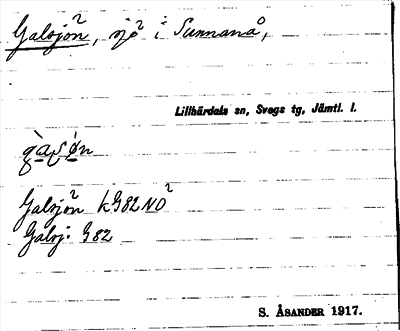 Galsjön, sjö i Sunnanå,
Lillhärdals sn, Svegs tg, Jämtl. l.
Galsjön k982NO
Galsj. 982
S. ÅSANDER 1917.